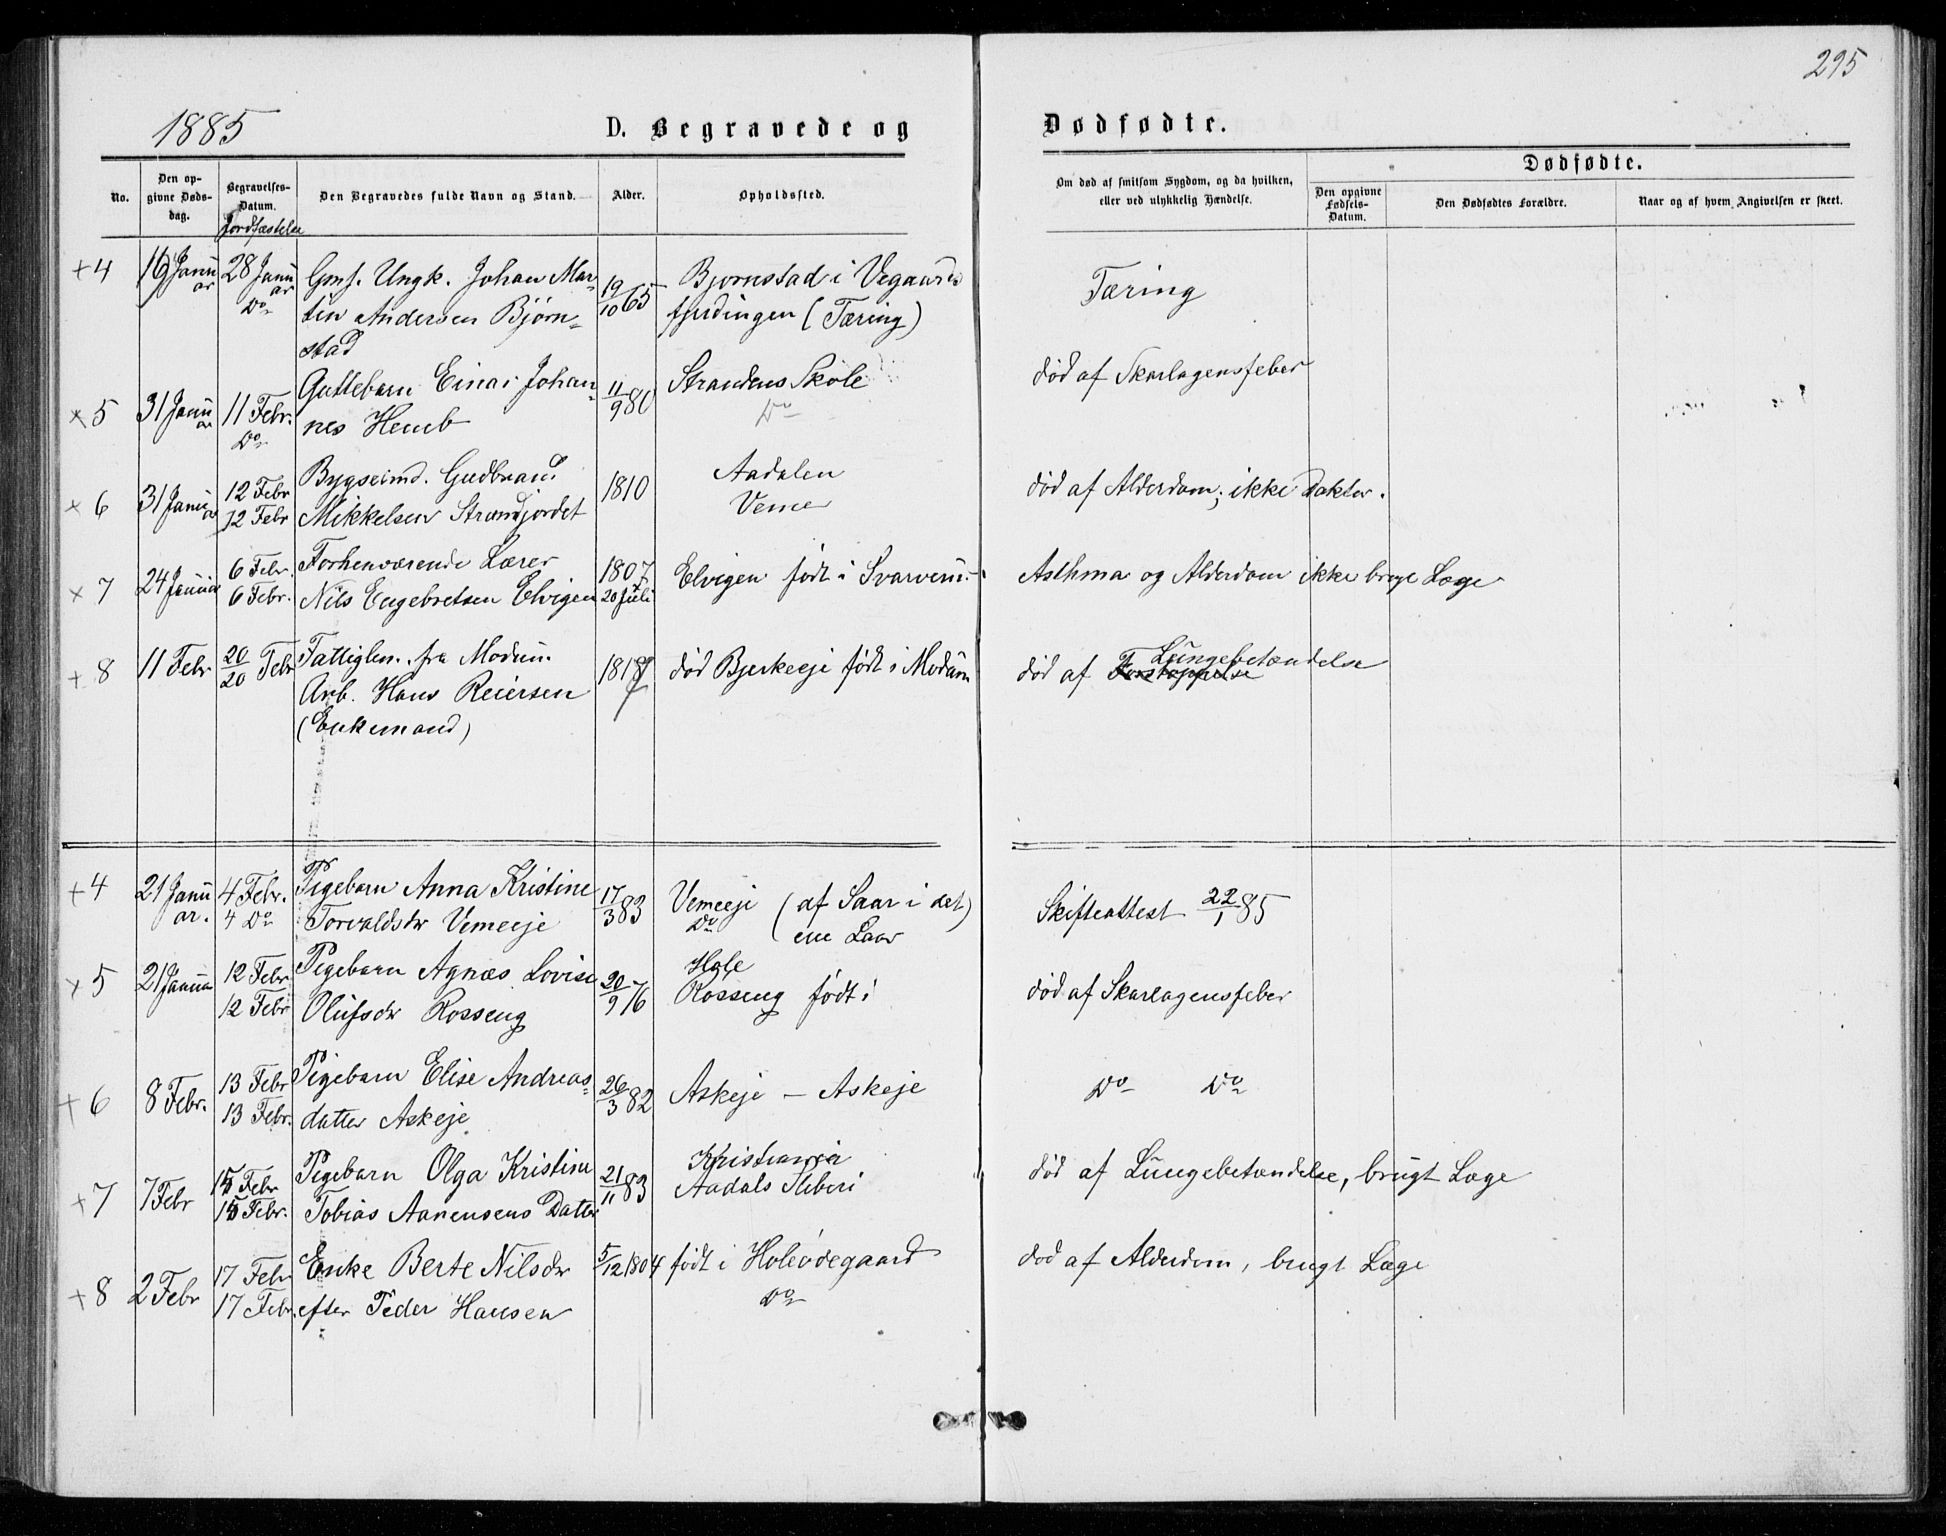 295
1885
D. Begravede og Dødfødte.
No.
Den opgivne Dødsdag.
Begravelses-Datum.
Jordfæstelse
Den Begravedes fulde Navn og Stand.
Alder.
Opholdssted.
Om død af smitsom Sygdom, og da hvilken, eller ved ulykkelig Hændelse.
Dødfødte.
Den opgivne Fødsels-Datum.
Den Dødfødtes Forældre.
Naar og af hvem Angivelsen er skeet.
+ 4 19 Januar 28 Januar Do Gmf. Ungk. Johan Martin Andersen Bjørnstad 19/10 65 Bjørnstad i Vegaardsfjerdingen (Tæring) Tæring
× 5 31 Januar 11 Febr. Do Guttebarn Einar Johannes Hemb 11/9 80 Strandens Skole Do død af Skarlagensfeber
× 6 31 Januar 12 Febr 12 Febr Bygselmd. Gudbrand Mikkelsen Strandjordet 1810 Aadalen Veme død af Alderdom; ikke Doktor.
× 7 24 Januar 6 Febr. 6 Febr. Forhenværende Lærer Nils Engebretsen Elvigen 1807 20 Juli Elvigen født i Asthma og Alderdom ikke brugt Læge
+ 8 11 Febr 20/20 Febr Fattiglem. fra Modum. Arb. Hans Reiersen (Enkemand) død Bjerkeeje født i Modum død af Forstoppelse Lungebetændelse
+ 4 21 Januar. 4 Febr. 4 Do Pigebarn Anna Kristine Torvaldsdr Vemeeje 17/3 83 Vemeeje Do (af Saar i det ene Laar) Skifteattest 22/1 85
+ 5 21 Januar 12 Febr 12 Febr Pigebarn Agnæs Lovise Olufsdr Rosseng 20/9 76 Hole Rosseng født i død af Skarlagensfeber
+ 6 8 Febr. 13 Febr 13 Febr. Pigebarn Elise Andreasdatter Askeje 26/3 82 Askeje — Askeje Do Do
+ 7 7 Febr 15 Febr 15 Febr. Pigebarn Olga Kristine Tobias Aanensens Datter 21/11 83 Kristiania Aadals Sliberi død af Lungebetændelse, brugt Læge
+ 8 2 Febr 17 Febr 17 Febr. Enke Berte Nilsdr efter Peder Hansen 5/12 1804 født i Holeødegaard Do død af Alderdom, brugt Læge